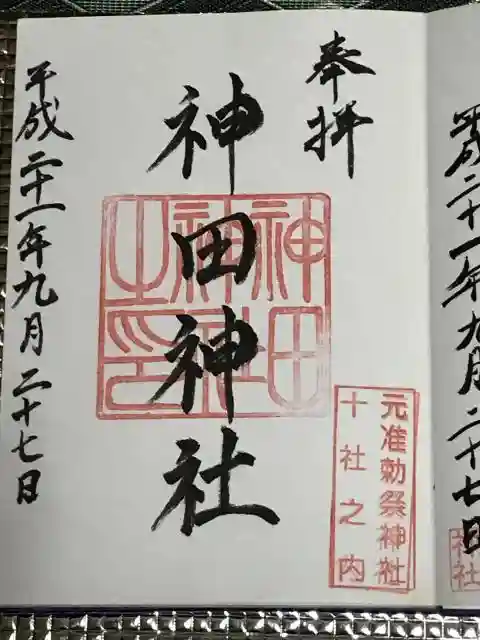 平成二十一年九月二十七日
奉拝
神田神社
神田神社之印
元准勅祭神社
十社之内
平成二十一年九月二十七日
神社